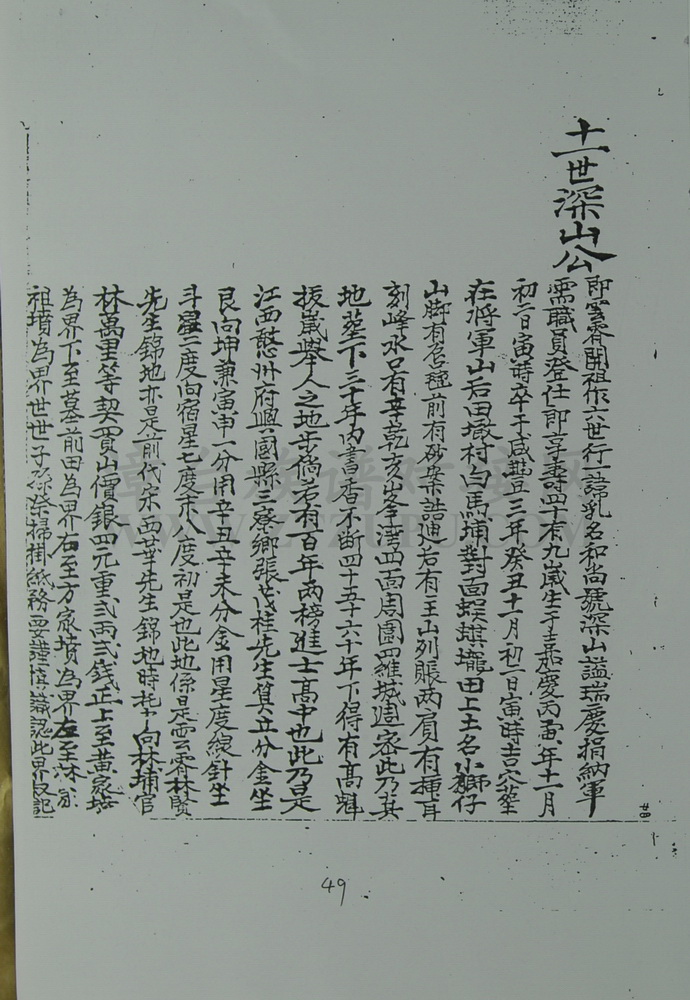 十一世深山公
即雲霄開祖作六世行一諱乳名和尚號深山諡瑞慶捐納軍
需職員登仕郎享壽四十有九歲生于嘉慶丙寅年十一月
初二日寅時卒于咸豐三年癸丑十一月初二日寅時吉穴葬
在将軍山后田墩村白馬埔對面蜈蜞壠田上土名小獅仔
山脚有石 前有砂案 過右有王山列賬两肩有 耳
刻峰水口有辛乾亥峯湾四面周圍羅城週密此乃真
地葬下三十年内書香不断四十五十六十年下得有髙魁
拔歲舉人之地步倘若有百年两榜進士髙中也此乃是
江西 州府興國縣三寮鄉張茂桂先生算立分金坐
艮向坤兼寅申一分用辛丑辛未分金用星度線針坐
斗 二度向宿星七度末八度初是也此地係是雲霄林賢
先生錦地亦是前代宋西華先生錦地時托 向林埔官
林萬里等契買山價銀四元重弍两弍錢正上至黃家坟
為界下至墓前田為界右至方家墳為界左至林 
祖墳為界世世子孫祭掃掛紙務要謹慎識認此界 記
49